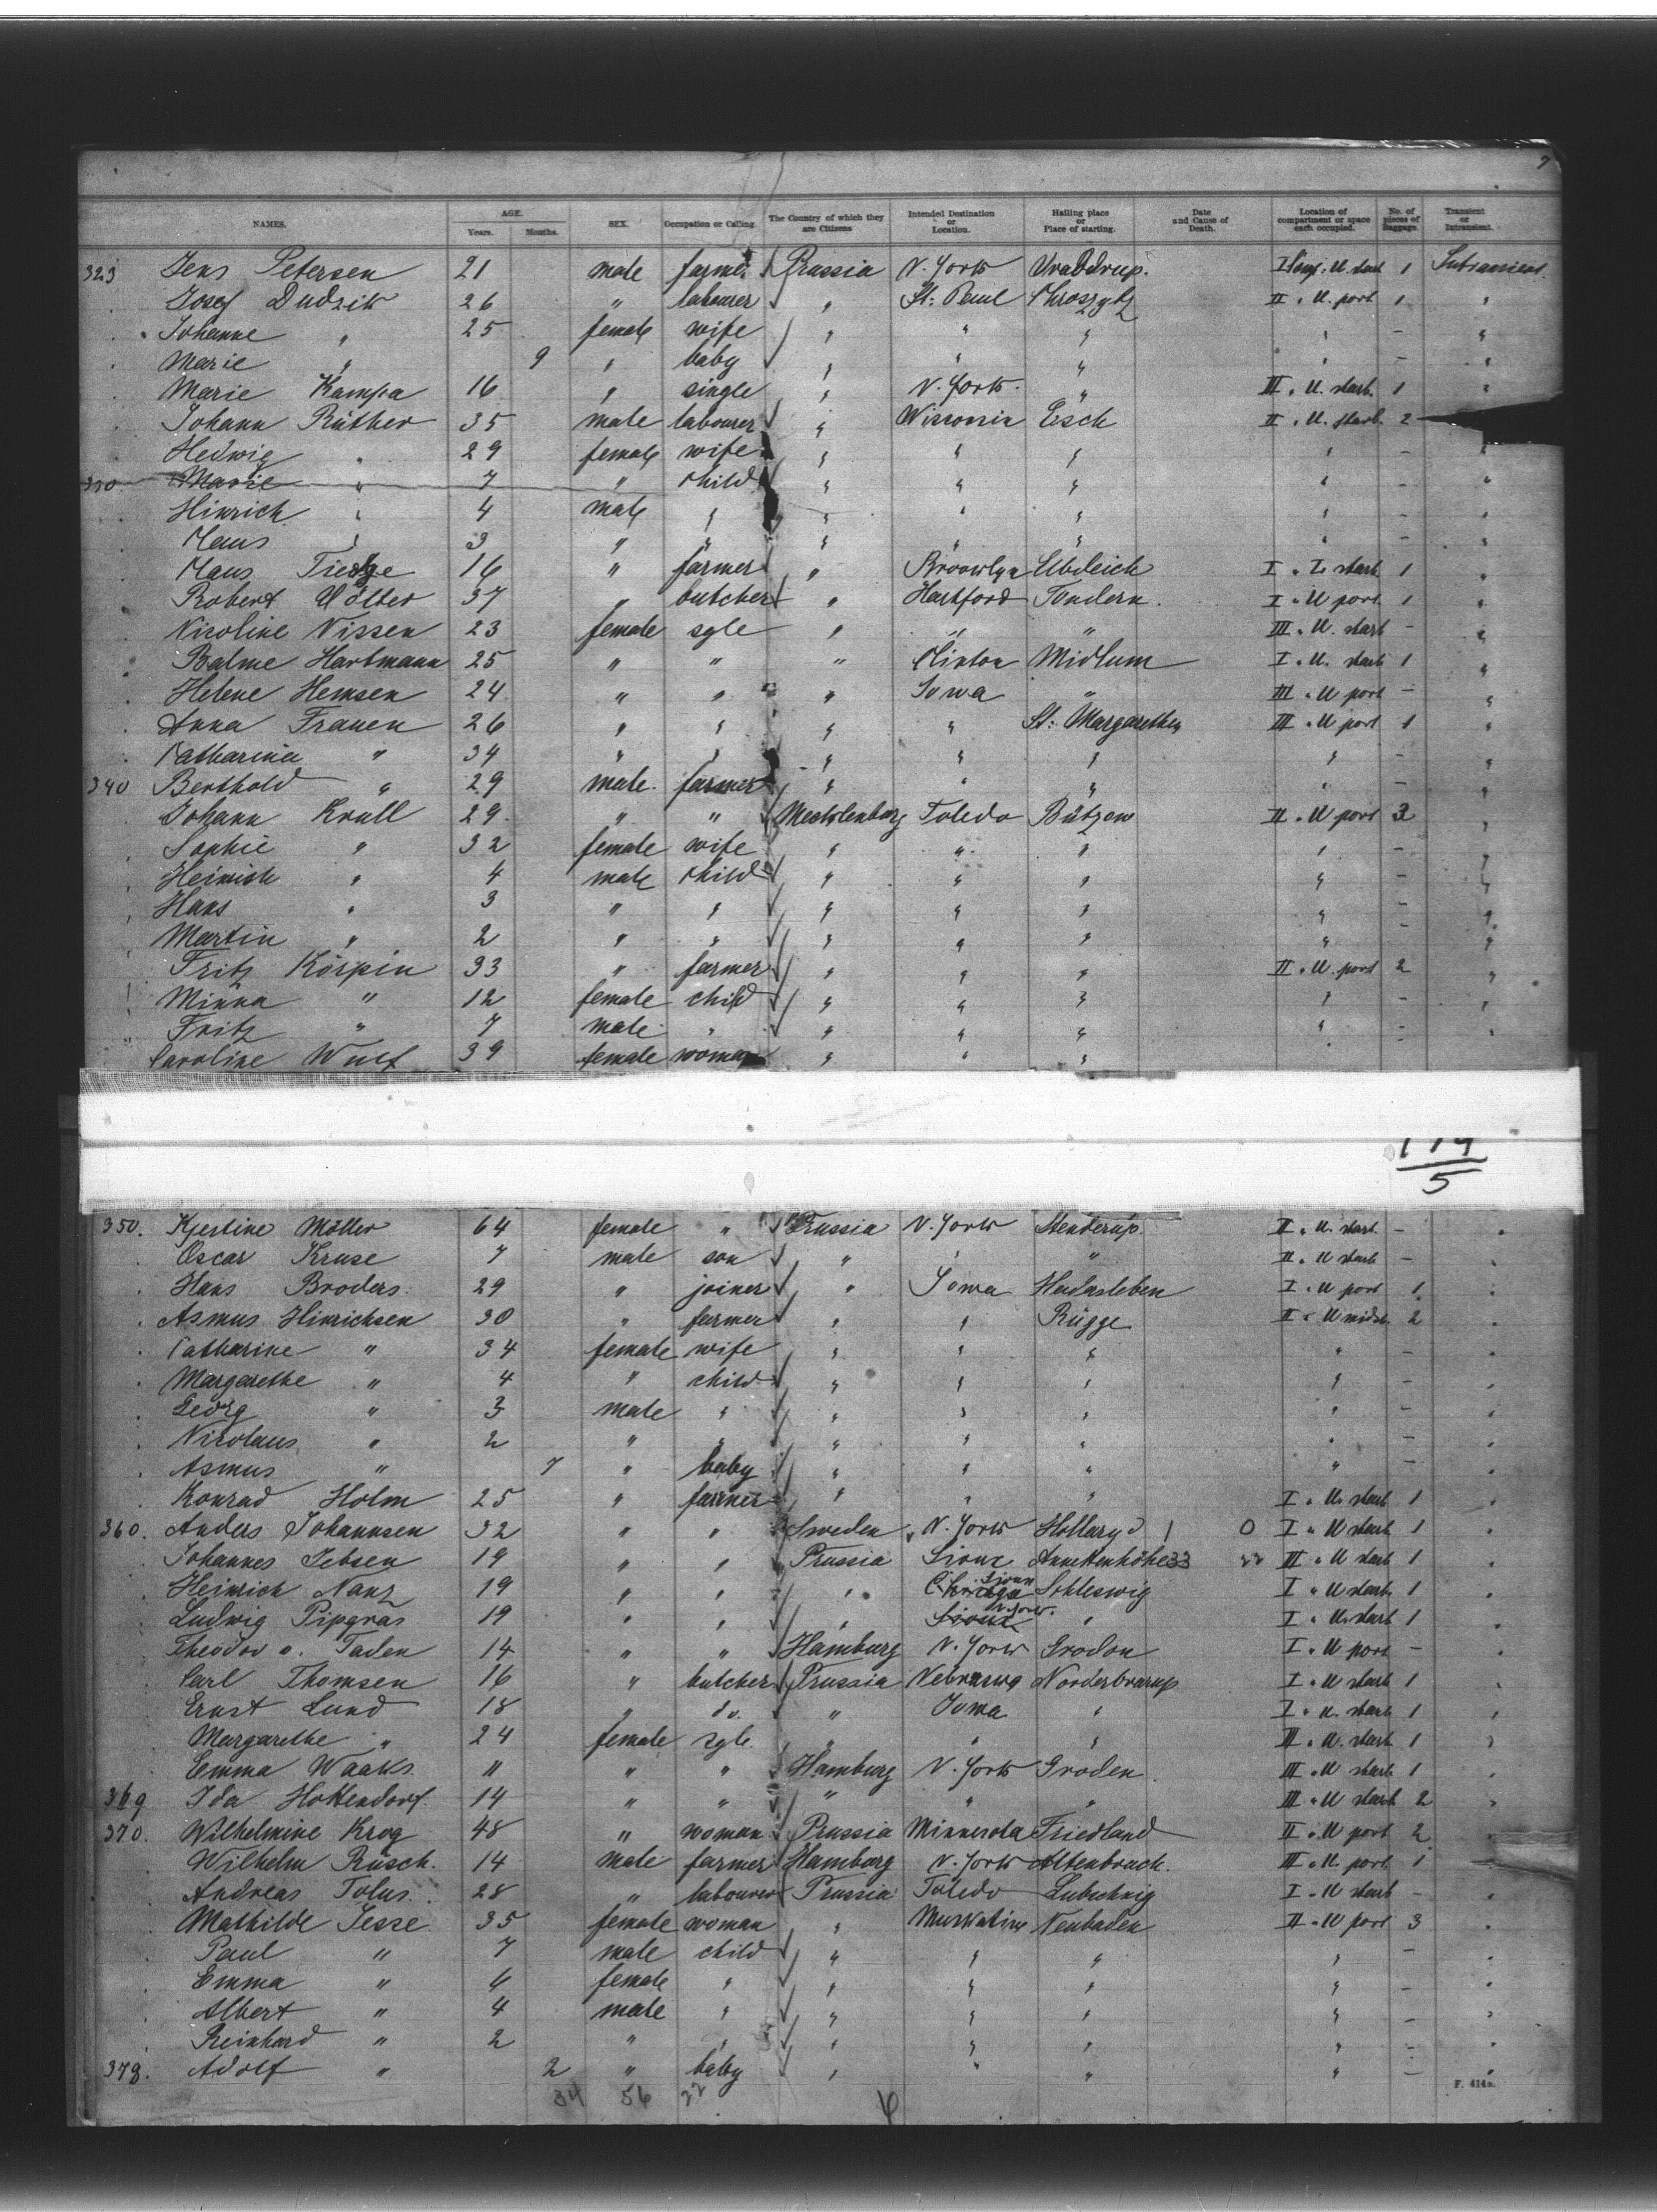 7
NAMES. AGE. Years. Months. SEX. Occupation or Calling. The Country of which they are Citizens Intended Destination or Location. Hailing place or Place of starting. Date and Cause of Death. Location of compartment or space each occupied. No. of pieces of Baggage. Transient or Intransient.
323 Jens Petersen 21 male farmer Prussia N. York I U. starb 1
Josef Dudzik 26 " labourer " St. Paul II " U. port 1 "
Johanne " 25 female wife " " " " - "
Marie " 9 " baby " " " " - "
Marie Kampa 16 " single " N. York " III " U. starb. 1 "
Johann Rüther 35 male labourer " Wisconsin Esch II " U. starb. 2
Hedwig " 29 female wife " " " " - "
330 Marie " 7 " child " " " " - "
Hinrich " 4 male " " " " " - "
Hans " 3 " " " " " " - "
Hans 16 " farmer " Brooklyn I " U starb 1 "
Robert Wölter 37 " butcher " Hartford Tondern. I " U port 1 "
Nicoline Nissen 23 female sgle " " " III " U. starb - "
Hartmann 25 " " " Clinton Midlum I " U. starb 1 "
Helene Hemsen 24 " " " Iowa " III " U port - "
Anna Frauen 26 " " " " St. Margarethen III " U port 1 "
Catharina " 34 " " " " " " - "
340 Berthold " 29 male farmer " " " " - "
Johann Krull 29 " " Mecklenburg Toledo Bützow II " U port 3 "
Sophie " 32 female wife " " " " - "
Heinrich " 4 male child " " " " - "
Hans " 3 " " " " " " - "
Martin " 2 " " " " " " "
Fritz Körpin 33 " farmer " " " II " U. port 2 "
Minna " 12 female child " " " " - "
Fritz " 7 male " " " " " - "
Caroline Wulf 39 female woman " " "
5
350. Kjestine Möller 64 female " Prussia N. York Stenderup. II " U. starb. - "
Oscar Kruse 7 male son " " " II " U starb - "
Hans Broders 29 " joiner " Iowa Hadersleben I " U port 1 "
Asmus Hinrichsen 30 " farmer " " Rügge II " U midsh. 2 "
Catharine " 34 female wife " " " " - "
Margarethe " 4 " child " " " " - "
Georg " 3 male " " " " " - "
Nicolaus " 2 " " " " " " - "
Asmus " 7 " baby " " " " - "
Konrad Holm 25 " farmer " " " I " U. starb 1 "
360. Anders Johannsen 32 " " Sweden N. York Hollaryd 1 0 I " U starb 1 "
Johannes Jebsen 19 " " Prussia Sioux Annettenhöhe 33 III " U starb 1 "
Heinrich Nanz 19 " " " Chicago Sioux Schleswig I " U starb 1 "
Ludwig Pipgras 19 " " " Sioux N. York. " I " U. starb 1 "
Theodor v. Taden 14 " " Hamburg N. York Groden I " U port - "
Carl Thomsen 16 " butcher Prussia Nebraska Norderbrarup I " U starb 1 "
Ernst Lund 18 " do. " Iowa " I " U. starb 1 "
Margarethe " 24 female sgle. " " " III " U. starb 1 "
Emma Waaks 11 " " Hamburg N. York Groden III " U starb 1 "
369 Ida Hottendorf. 14 " " " " " III " U starb 2 "
370. Wilhelmine Krog 48 " woman Prussia Minnesota Friedland II " U port 2 "
Wilhelm Rüsch. 14 male farmer Hamburg N. York Altenbruch. III " U. port. 1 "
Andreas Tolus. 28 " labourer Prussia Toledo I " U starb - "
Mathilde Jesse 35 female woman " Muskatine Neubaden II " U port 3 "
Paul " 7 male child " " " " - "
Emma " 6 female " " " " " - "
Albert " 4 male " " " " " - "
Reinhard " 2 " " " " " " - "
378. Adolf " 2 " baby " " " " - "
34 56 22
F. 414a.